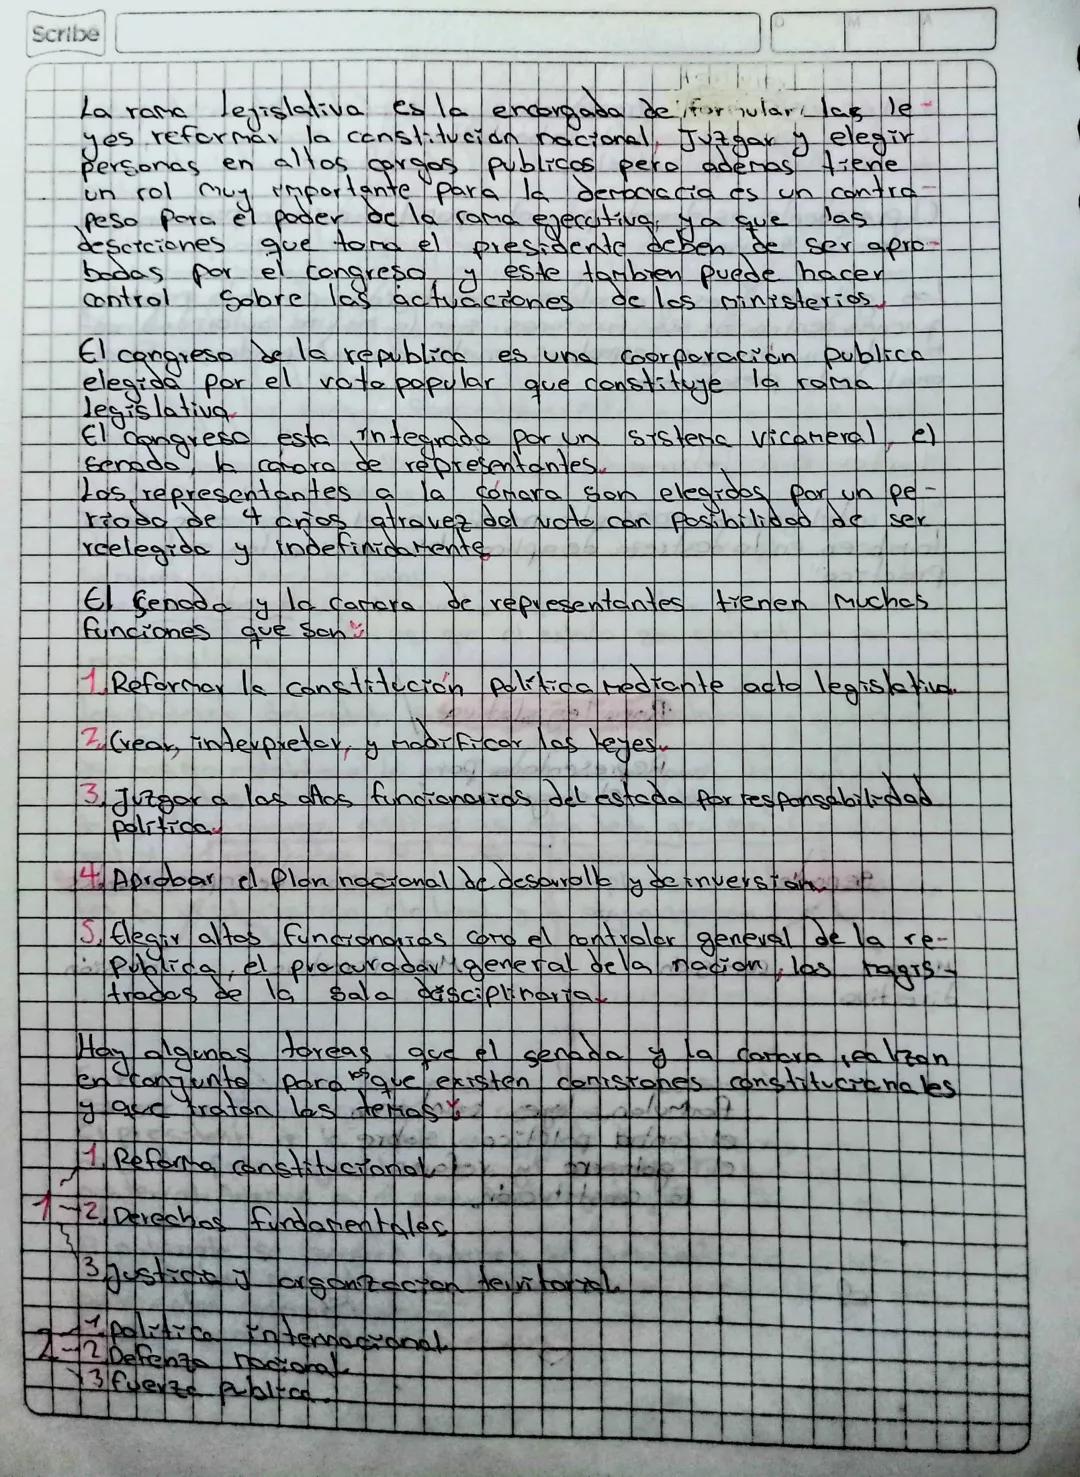 Scribe
D M A
La rama legislativa es la encargada de formular las le-
yes reformar la constitución nacional, Juzgar y elegir
personas en altos cargos publicos pero ademas tiene
un rol muy importante para la democracia es un contra-
peso para el poder de la rama ejecutiva, ya que las
desciciones que toma el presidente deben de ser apro-
badas por el congreso y este tambien puede hacer
control sobre las actuaciones de los ministerios.
El congreso de la republica es una coorporación publica
elegida por el voto popular que constituye la rama
legislativa.
El congreso esta integrado por un sistema vicameral, el
senado, la camara de representantes.
Los representantes a la cámara son elegidos por un pe-
riodo de 4 años atravez del voto con posibilidad de ser
reelegido y indefinidamente.
El Senado y la camara de representantes tienen muchas
funciones que son:
1. Reformar la constitución política mediante acto legislativo.
2. Crear, interpretar, y modificar las leyes.
3. Juzgar a los altos funcionarios del estado por responsabilidad
política.
4. Aprobar el Plan nacional de desarrollo y de inversión.
5. Elegir altos funcionarios como el controlor general de la re-
publica, el procurador general de la nación, los magis-
trados de la sala desciplinaria.
Hay algunas tareas que el senado y la camara realizan
en conjunto para que existen comisiones constitucionales
y que tratan los temas:
1. Reforma constitucional
1 - 2. Derechos fundamentales
3. justicia y organización territorial
1 política internacional
2 - 2 Defenza nacional
3 fuerza publica